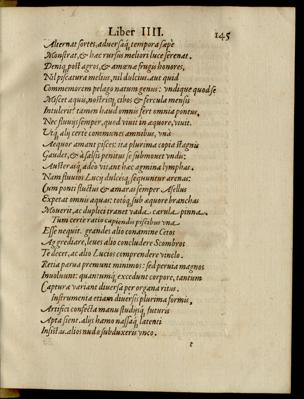 Liber IIII. 145
Alternat sortes, aduersaq́; tempora sæpè
Monstrat, & hac rursus meliori luce serenat.
Deniq; post agros, & amœna frugis honores,
Nil piscatura melius, nil dulcius, aut quid
Commemorem pelago natum genus: vndique quod se
Miscet aquis, nostrisq́; cibos & fercula mensis
Intulerit? tamen haud omnis fert omnia pontus.
Nec fluuijs semper, quod viuit in æquore, viuit.
Vtq́; alij certè communes amnibus, vnà
Aequor amant pisces: ita plurima copia stagnis
Gaudet, & à salsis penitus se submouet vndis:
Austerasq́; adeò vitant hæc agmina lymphas.
Nam fluuios Lucij dulcesq́; sequuntur arenas:
Cum ponti fluctus & amaras semper Asellus
Expetat omnis aquas: totoq́; sub æquore branchas
Mouerit, ac duplici tranet vada cærula pinna.
Tum certe ratio capiendi piscibus vna
Esse nequit. grandes alio conamine Cetos
Aggrediare, leues alio concludere Scombros
Te decet, ac alio Lucios comprendere vinclo.
Retia parua premunt minimos: sed peruia magnos
Inuoluunt: quantumq́; excedunt corpore, tantum
Captura variant diuersa per organa ritus.
Instrumenta etiam diuersis plurima formis,
Artifici confecta manu studijsq́; futuris
Apta sient. alijs hamo nassáq; latenti
Insistas, alios nudo subduxeris vnco.
t